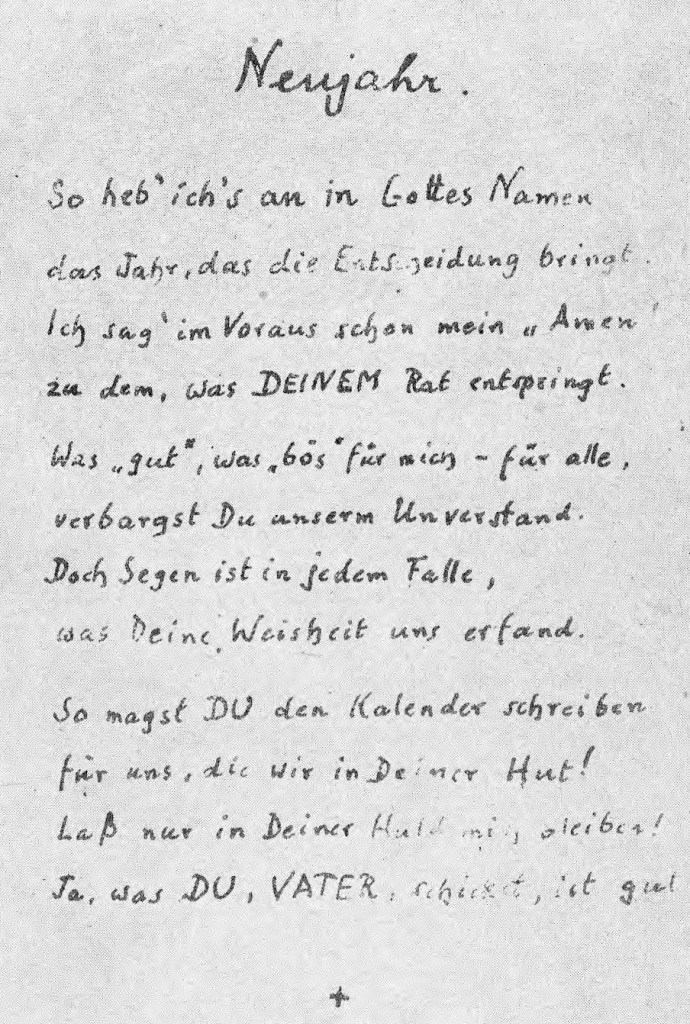 Neujahr.
So heb' ich's an in Gottes Namen
das Jahr, das die Entscheidung bringt.
Ich sag' im Voraus schon mein „Amen"
zu dem, was DEINEM Rat entspringt.
Was „gut", was „bös" für mich - für alle,
verbargst Du unserm Unverstand.
Doch Segen ist in jedem Falle,
was Deine Weisheit uns erfand.
So magst DU den Kalender schreiben
für uns, die wir in Deiner Hut!
Laß nur in Deiner Huld mich bleiben!
Ja, was DU, VATER, schickst, ist gut
+